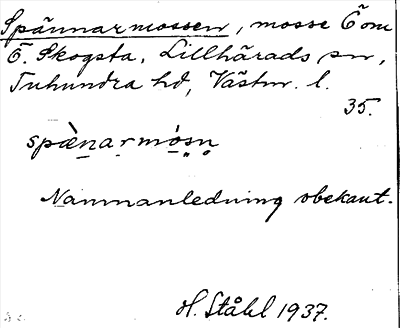 Spännarmossen, mosse Ö om
Ö. Skogsta, Lillhärads sn,
Tuhundra hd, Västm. l.
35.
spä̀n̠a̠r̠mó̠s̥n̥
Namnanledning obekant.
H. Ståhl 1937.